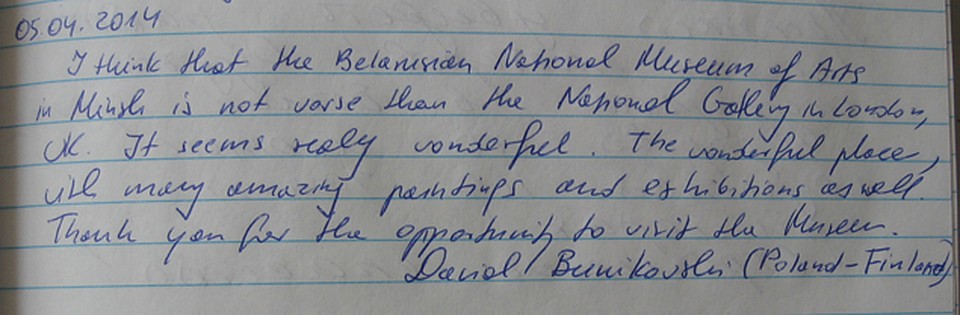 05.04.2014
I think that the Belarusian National Museum of Arts
in Minsk is not worse than the National Gallery in London,
UK. It seems realy wonderful. The wonderful place,
with many amazing paintings and exhibitions as well.
Thank you for the opportunity to visit the Museum.
David Bunikowski (Poland-Finland)